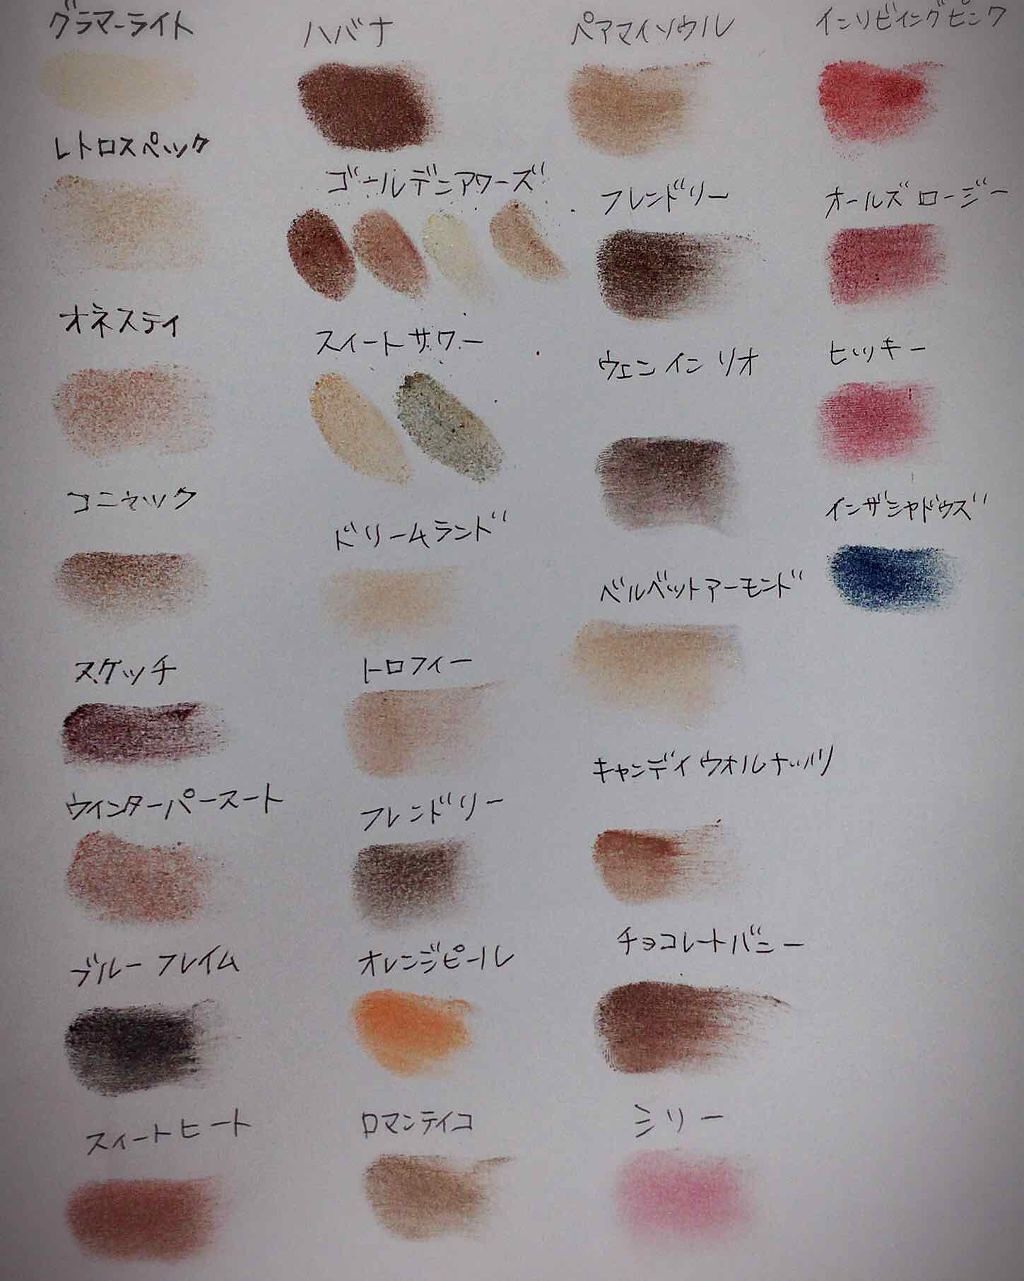 グラマーライト
レトロスペック
オネスティ
コニャック
スケッチ
ウインターパースート
ブルーフレイム
スイートヒート
ハバナ
ゴールデンアワーズ
スイートサワー
ドリームランド
トロフィー
フレンドリー
オレンジピール
ロマンティコ
ペアマイソウル
フレンドリー
ウェンインリオ
ベルベットアーモンド
キャンディウオルナッツ
チョコレートバニー
ミリー
インリビイングピンク
オールズロージー
ヒッキー
インザシャドウズ